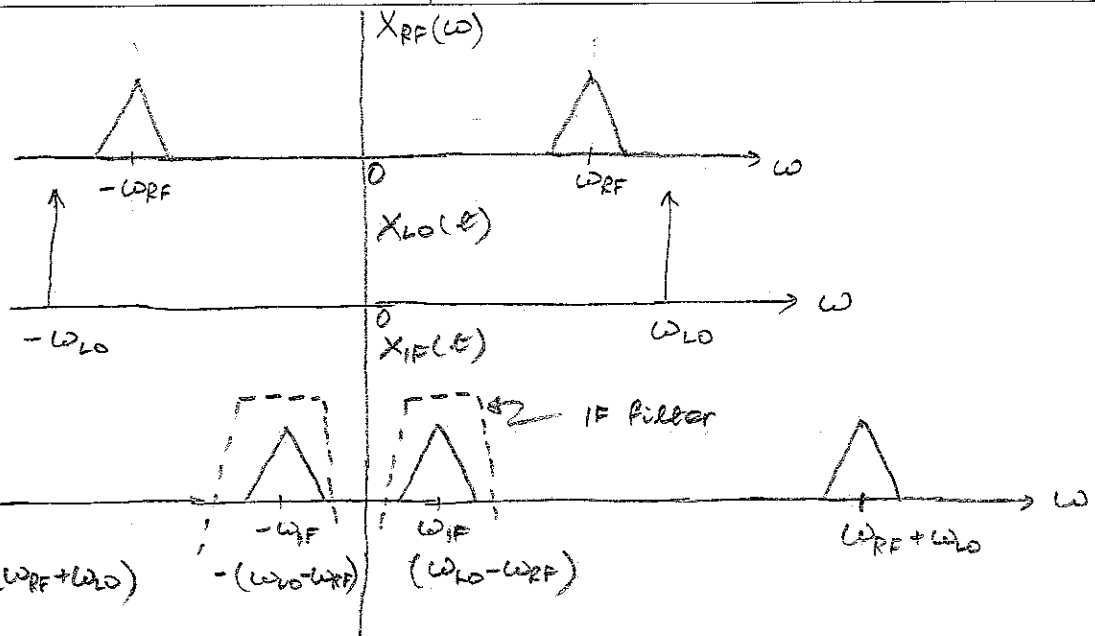 X_RF(ω)
-ω_RF 0 ω_RF ω
X_LO(t)
-ω_LO 0 ω_LO ω
X_IF(t)
IF filter
-ω_IF ω_IF ω_RF+ω_LO ω
(ω_RF+ω_LO) -(ω_LO-ω_RF) (ω_LO-ω_RF)